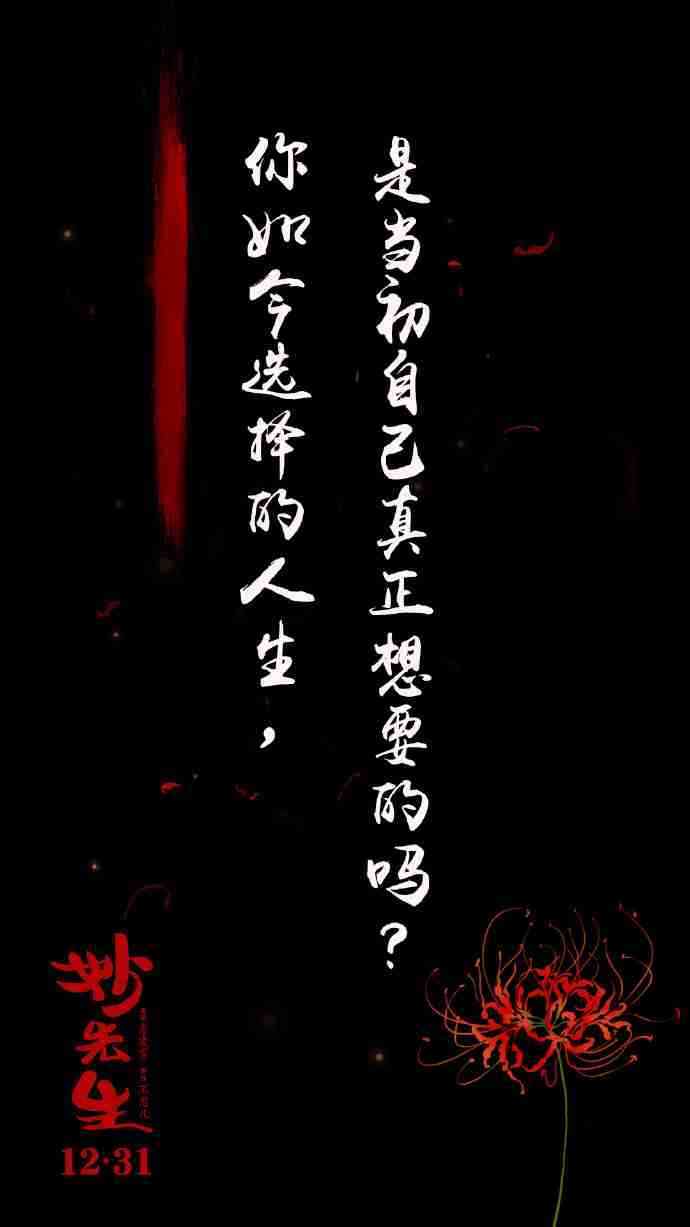 你如今选择的人生，
是当初自己真正想要的吗？
妙先生
12·31